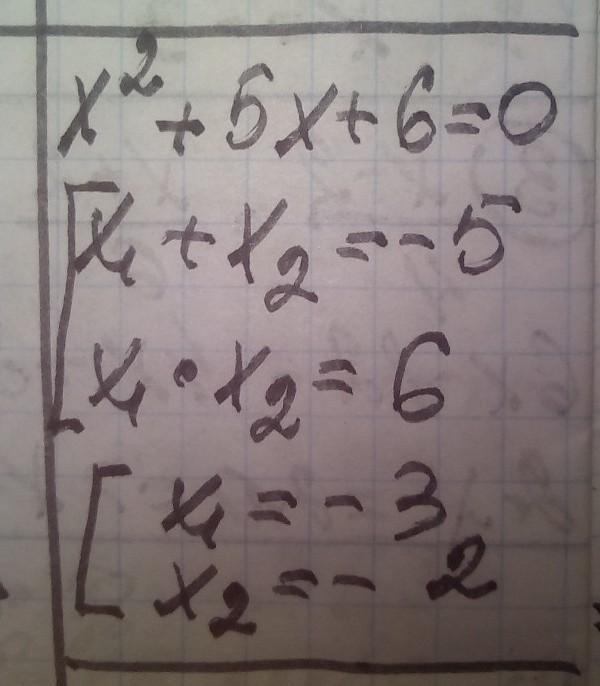 x² + 5x + 6 = 0
[ x₁ + x₂ = -5
x₁ · x₂ = 6
[ x₁ = -3
x₂ = -2